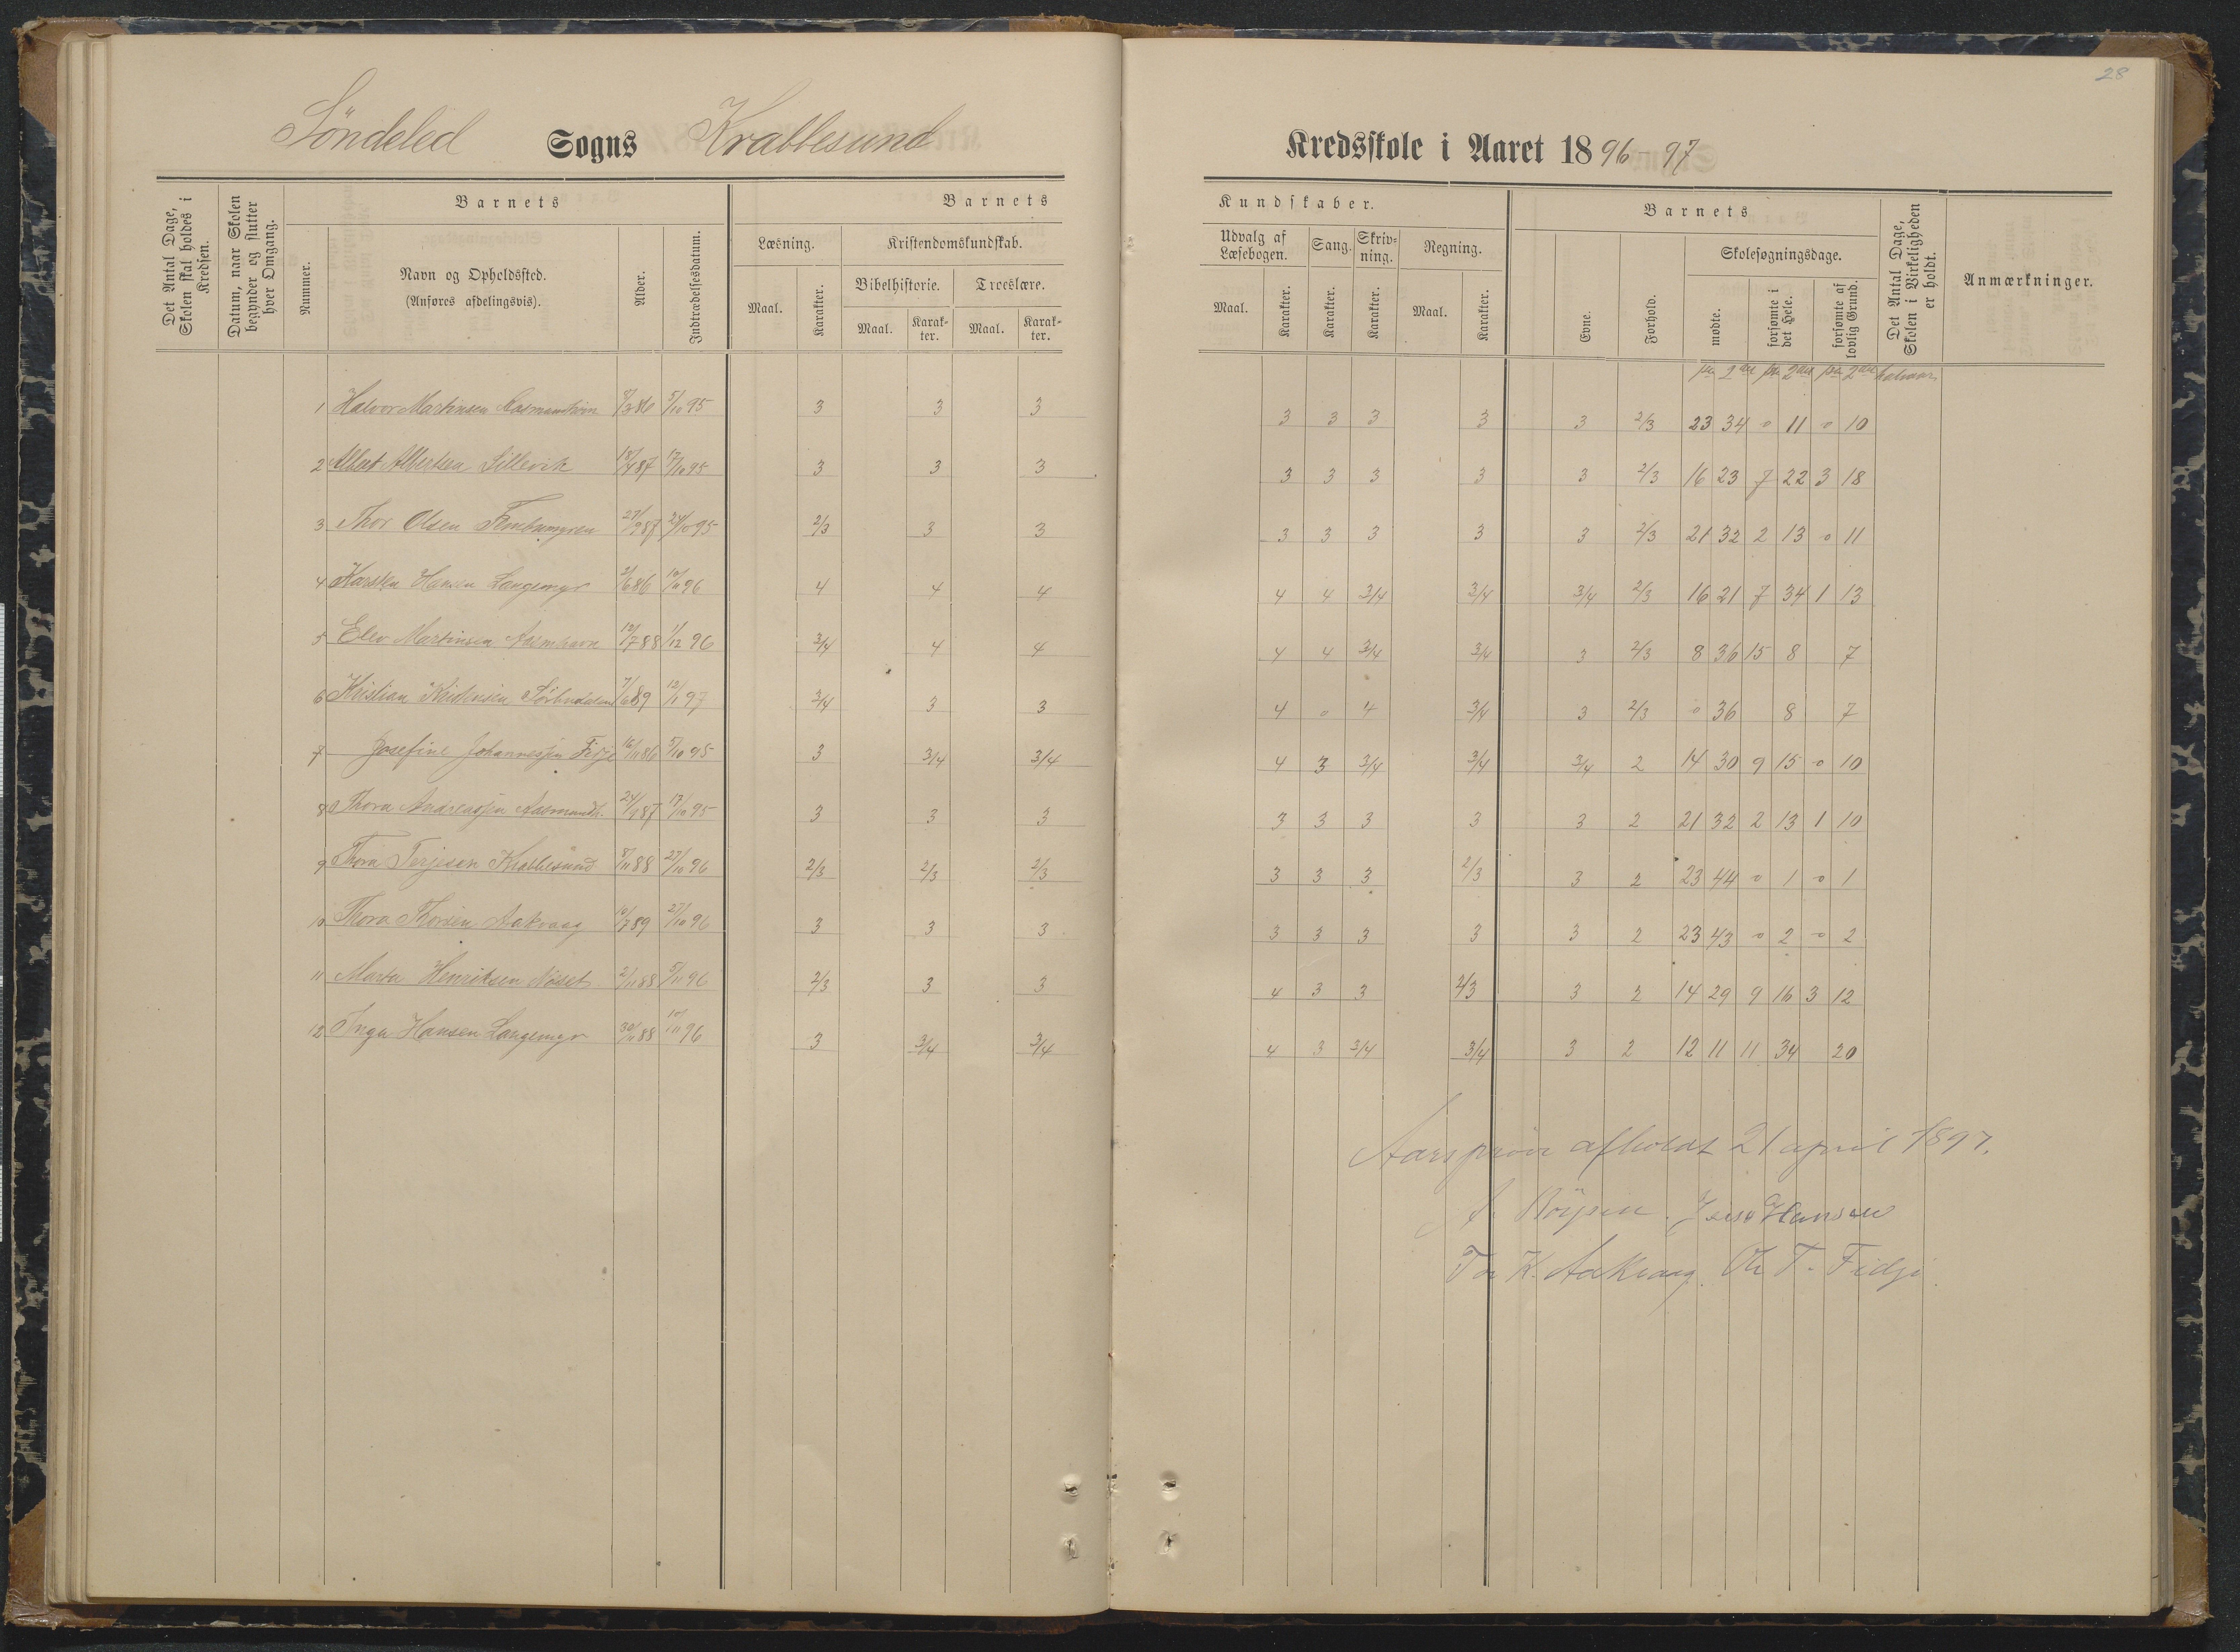 28
Söndeled Sogns Krabbesund Kredsskole i Aaret 1896-97
Det Antal Dage, Skolen skal holdes i Kredsen.
Datum, naar Skolen begynder og slutter hver Omgang.
Barnets
Nummer.
Navn og Opholdssted.
(Anføres afdelingsvis).
Alder.
Indtrædelsesdatum.
Barnets Kundskaber.
Læsning.
Maal. Karakter.
Kristendomskundskab.
Bibelhistorie. Troeslære.
Maal. Karakter. Maal. Karakter.
Udvalg af Læsebogen.
Maal. Karakter.
Sang.
Karakter.
Skrivning.
Karakter.
Regning.
Maal. Karakter.
Barnets
Evne.
Forhold.
Skolesøgningsdage.
mødte.
forsømte i det Hele.
forsømte af lovlig Grund.
Det Antal Dage, Skolen i Virkeligheden er holdt.
Anmærkninger.
1 Halvor Martinsen 5/10 95 3 3 3 3 3 3 3 3 2/3 23 34 0 11 0 10
2 Albert Albertsen Sillevik 18/4 87 17/10 95 3 3 3 3 3 3 3 3 2/3 16 23 7 22 3 18
3 Thor Olsen 27/9 87 24/10 95 2/3 3 3 3 3 3 3 3 2/3 21 32 2 13 0 11
4 Karsten Hansen Langemyr 2/6 86 10/11 96 4 4 4 4 4 3/4 3/4 3/4 2/3 16 21 7 34 1 13
5 Elev Martinsen 12/7 88 1/12 96 3/4 4 4 4 4 3/4 3/4 3 2/3 8 36 15 8 7
6 Kristian Kristensen 7/6 89 12/1 97 3/4 3 3 4 0 4 3/4 3 2/3 0 36 8 7
7 Josefine Johannessen Fidje 16/11 86 5/10 95 3 3/4 3/4 4 3 3/4 3/4 3/4 2 14 30 9 15 0 10
8 Thora Andreassen Aasmundh. 24/9 87 17/10 95 3 3 3 3 3 3 3 3 2 21 32 2 13 1 10
9 Thora Terjesen Krabbesund 8/11 88 27/10 96 2/3 2/3 2/3 3 3 3 2/3 3 2 23 44 0 1 0 1
10 Thora Thorsen Aakvaag 10/7 89 27/10 96 3 3 3 3 3 3 3 3 2 23 43 0 2 0 2
11 Marta Henriksen 2/11 88 5/11 96 2/3 3 3 4 3 3 2/3 3 2 14 29 9 16 3 12
12 Inga Hansen Langemyr 30/11 88 10/11 96 3 3/4 3/4 4 3 3/4 3/4 3 2 12 11 11 34 20
Aarsprøve afholdt 21 april 1897.
Jens Hansen
K. Aakvaag. T. Fidje